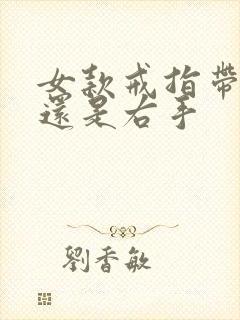 女款戒指帶
還是右手
劉香敏